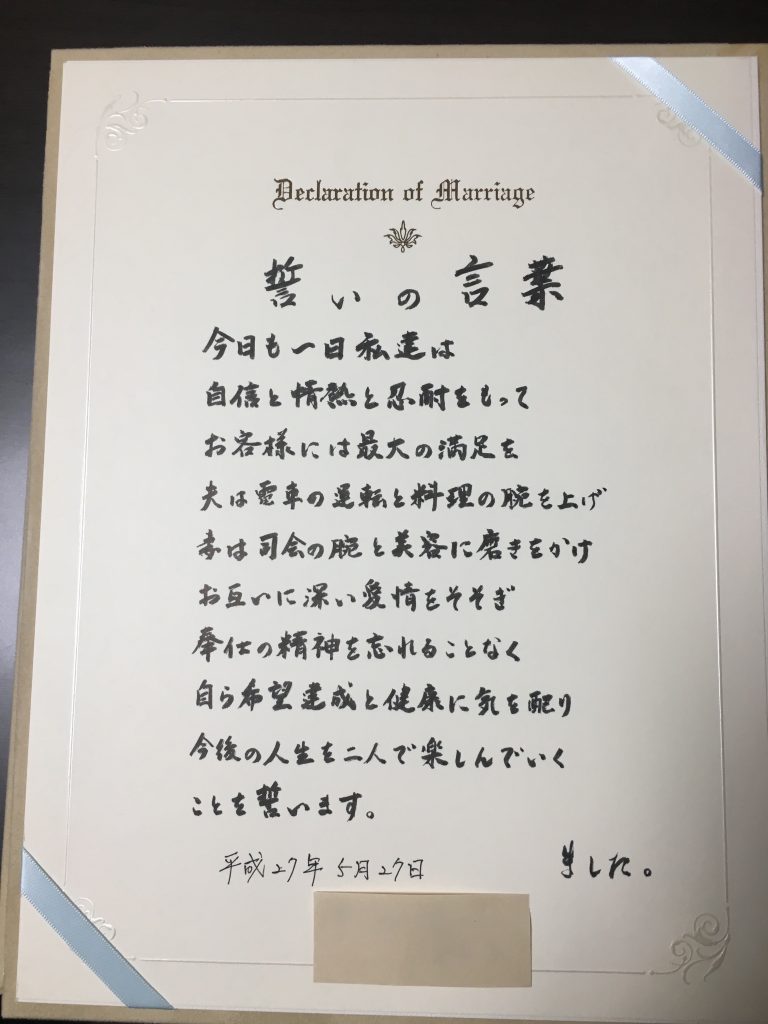 Declaration of Marriage
誓いの言葉
今日も一日私達は
自信と情熱と忍耐をもって
お客様には最大の満足を
夫は電車の運転と料理の腕を上げ
妻は司会の腕と美容に磨きをかけ
お互いに深い愛情をそそぎ
奉仕の精神を忘れることなく
自ら希望達成と健康に気を配り
今後の人生を二人で楽しんでいく
ことを誓います。
平成27年5月27日 ました。